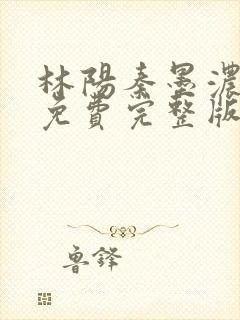 林陽秦墨濃
免費完整版
魯鋒